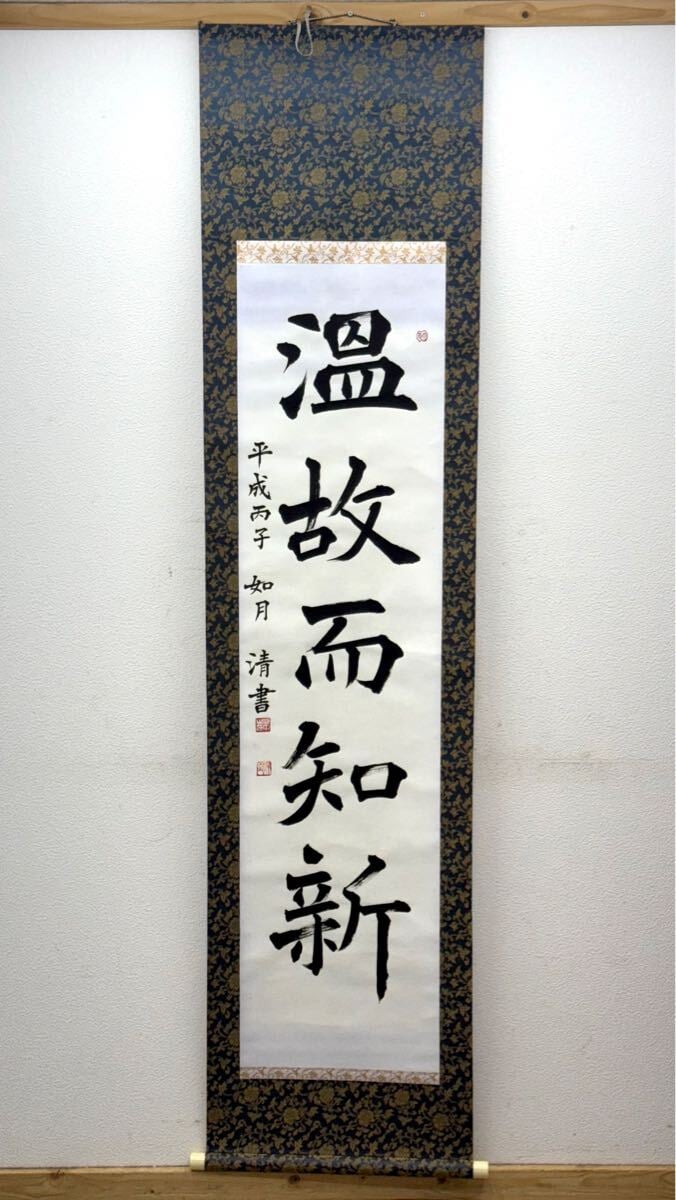 溫故而知新
平成丙子 如月 清書